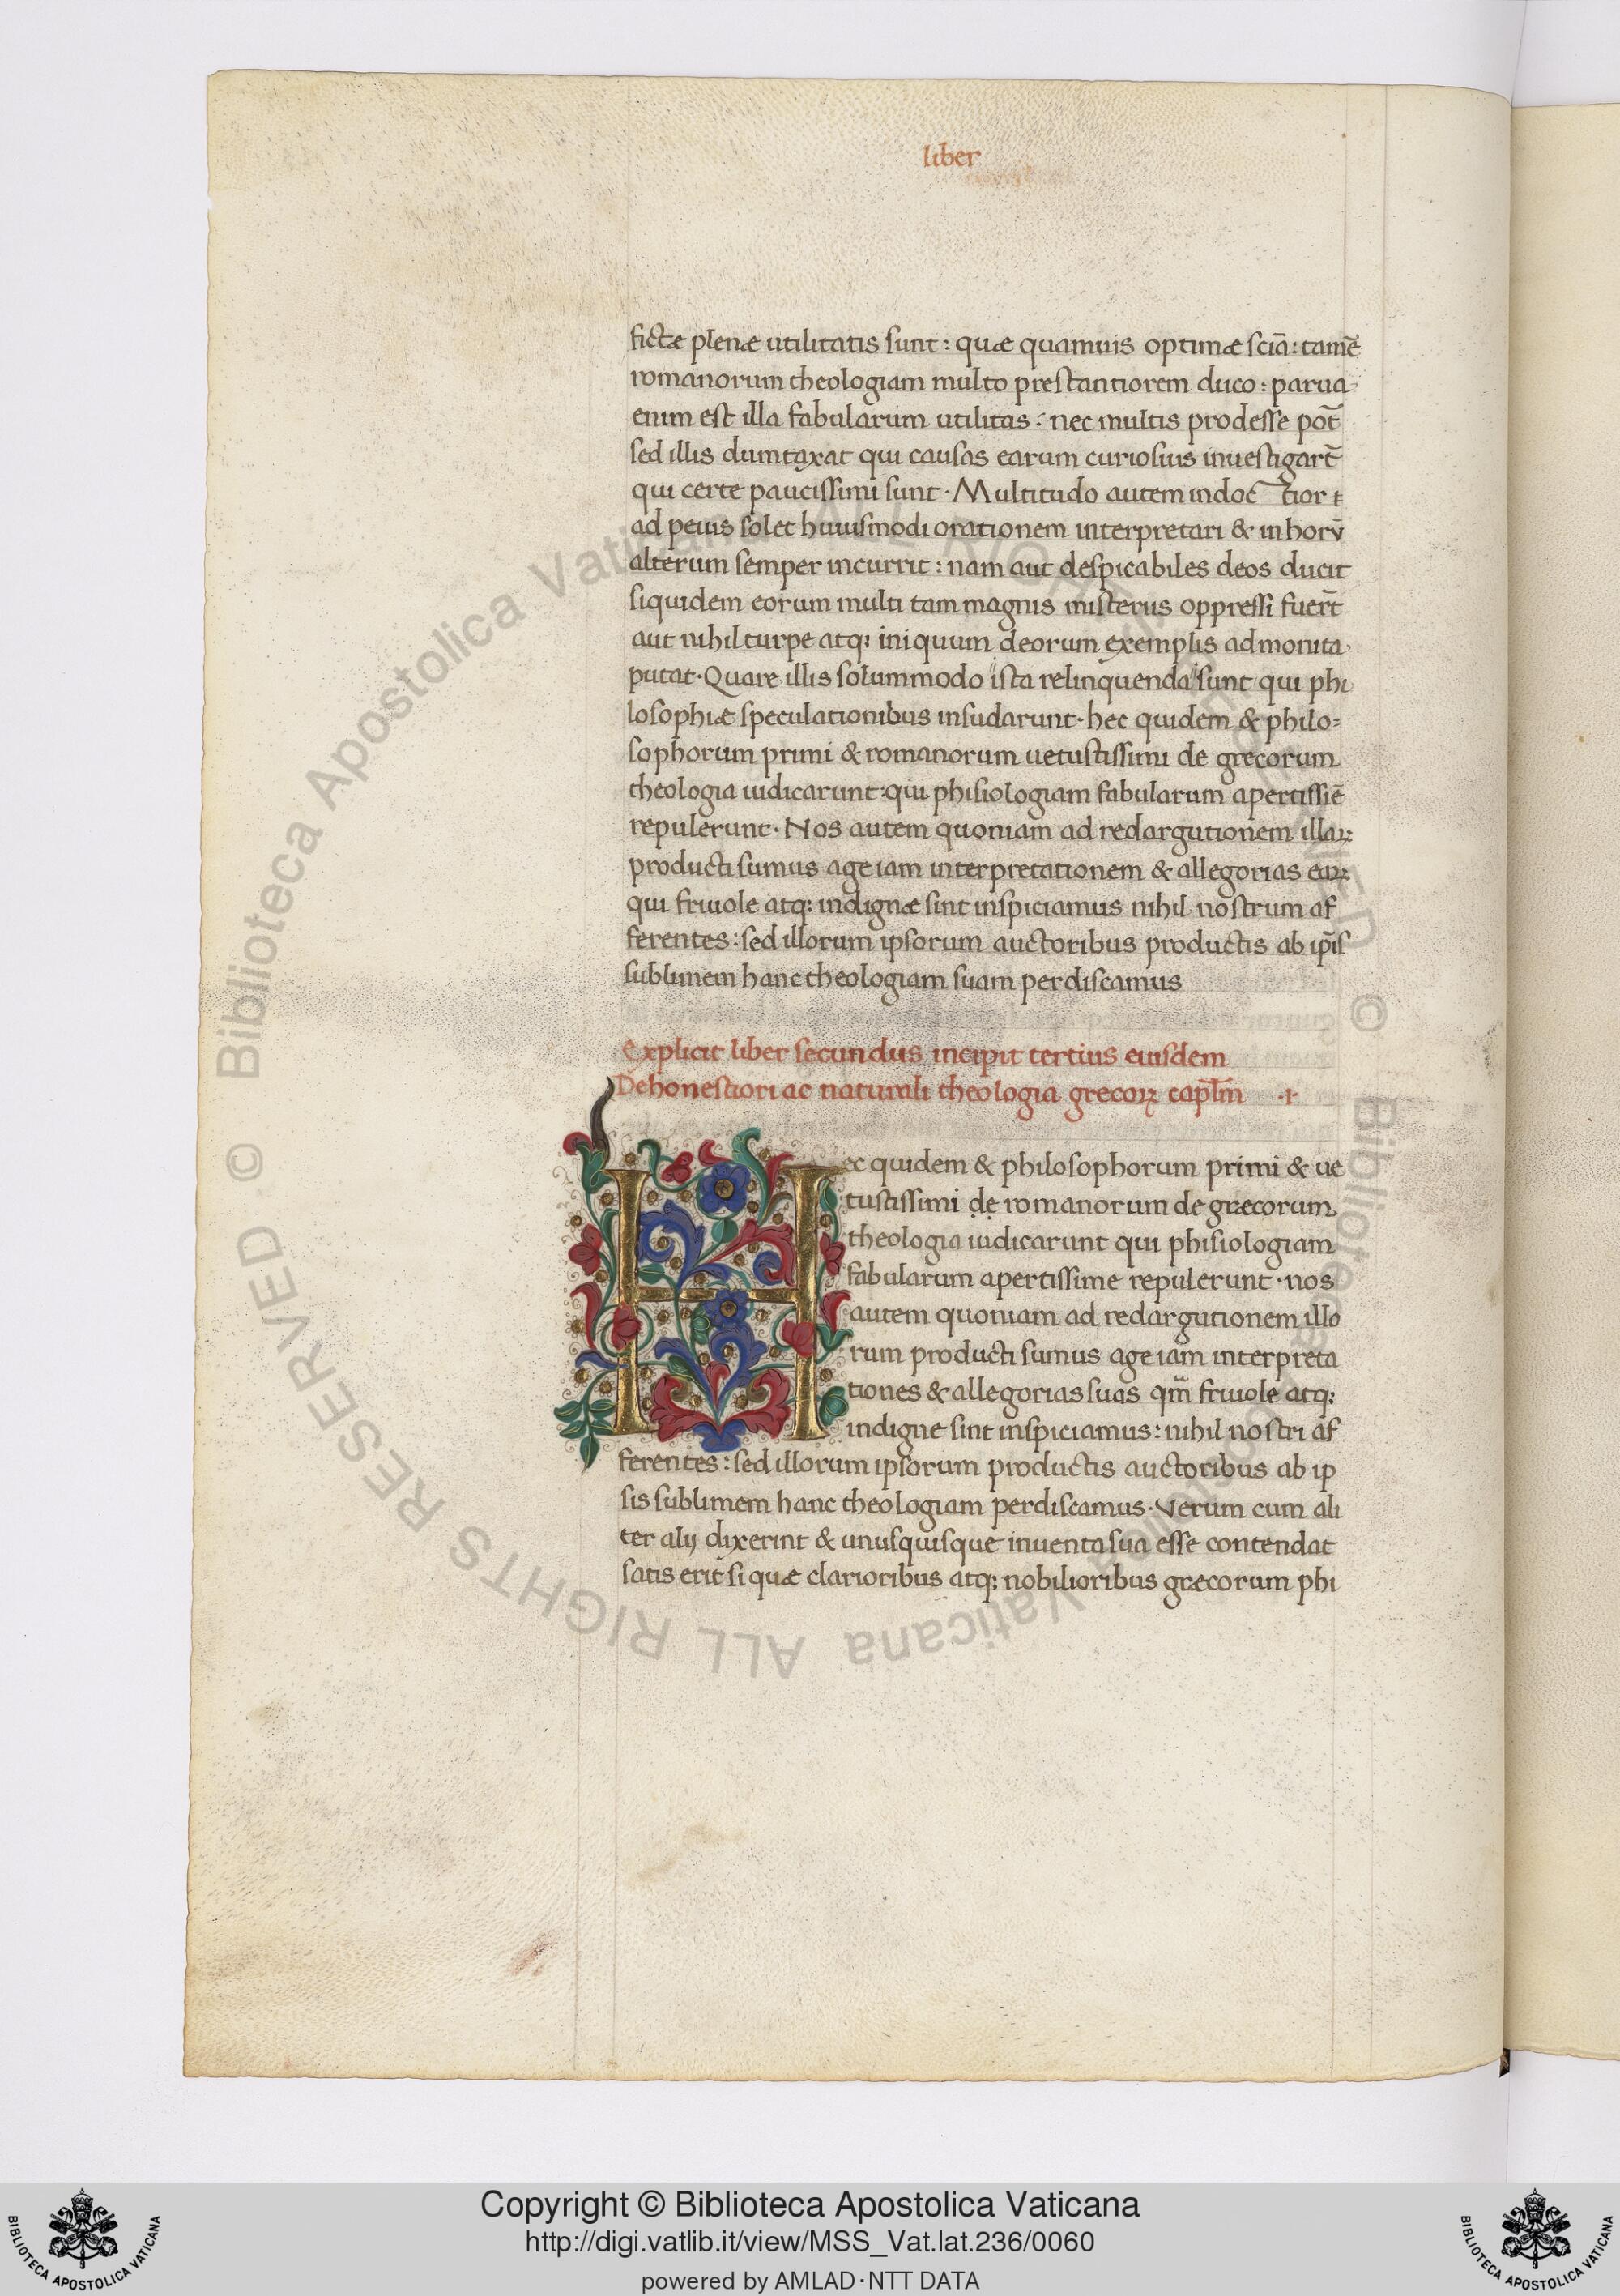 liber
fictæ plenæ utilitatis sunt: quæ quamuis optimæ sciā: tamē
romanorum theologiam multo prestantiorem duco: parua
enim est illa fabularum utilitas: nec multis prodesse pot̄
sed illis dumtaxat qui causas earum curiosius inuestigart̄
qui certe paucissimi sunt· Multitudo autem indoc tiorꝝ
ad peius solet huiusmodi orationem interpretari & in horū
alterum semper incurrit: nam aut despicabiles deos ducit
siquidem eorum multi tam magnis misteriis oppressi fuert̄
aut nihil turpe atq: iniquum deorum exemplis admonita
putat· Quare illis solummodo ista relinquenda sunt qui phi
losophiæ speculationibus insudarunt· hec quidem & philo=
sophorum primi & romanorum uetustissimi de grecorum
theologia iudicarunt: qui phisiologiam fabularum apertissiē
repulerunt· Nos autem quoniam ad redargutionem illaꝝ
producti sumus age iam interpretationem & allegorias eaꝝ
qui friuole atq: indignæ sint inspiciamus nihil nostrum af
ferentes: sed illorum ipsorum auctoribus productis ab ip̄is
sublimem hanc theologiam suam perdiscamus
Explicit liber secundus incipit tertius eiusdem
De honestiori ac naturali theologia grecoꝝ cap̄lm ·1·
Hec quidem & philosophorum primi & ue
tustissimi ḍẹ romanorum de græcorum
theologia iudicarunt qui phisiologiam
fabularum apertissime repulerunt· nos
autem quoniam ad redargutionem illo
rum producti sumus age iam interpreta
tiones & allegorias suas qm̄ friuole atq:
indigne sint inspiciamus: nihil nostri af
ferentes: sed illorum ipsorum productis auctoribus ab ip
sis sublimem hanc theologiam perdiscamus· Verum cum ali
ter alij dixerint & unusquisque inuenta sua esse contendat
satis erit si quæ clarioribus atq: nobilioribus græcorum phi
© Biblioteca Apostolica Vaticana ALL RIGHTS RESERVED © Biblioteca Apostolica Vaticana ALL RIGHTS RESERVED
Copyright © Biblioteca Apostolica Vaticana
http://digi.vatlib.it/view/MSS_Vat.lat.236/0060
powered by AMLAD·NTT DATA
BIBLIOTECA APOSTOLICA VATICANA
BIBLIOTECA APOSTOLICA VATICANA